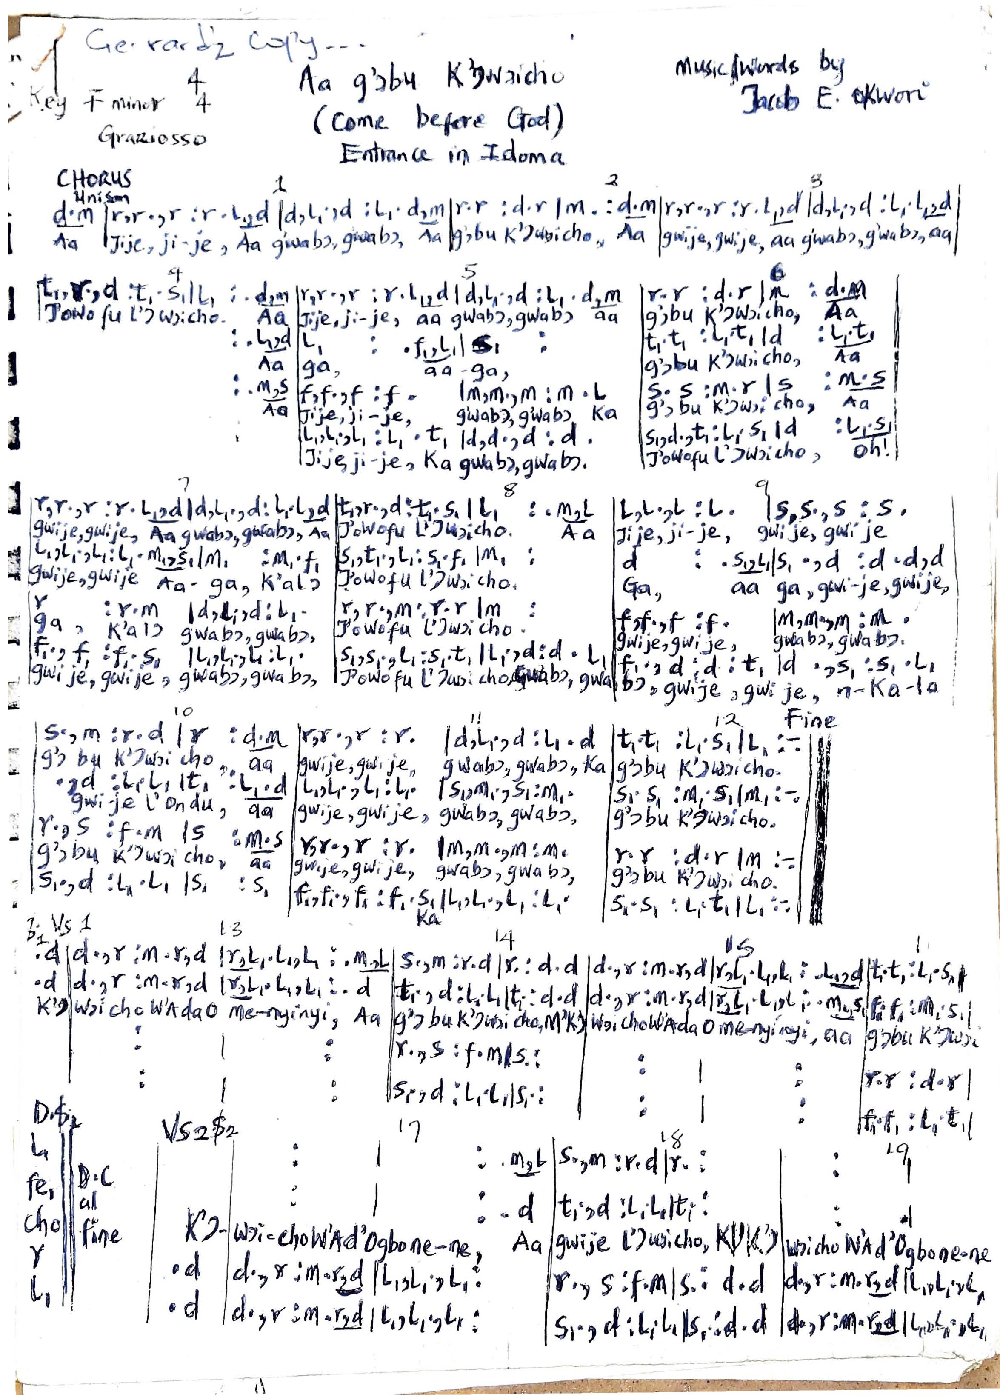 Gerard'z copy...
Key F minor 4 4
Graziosso
Aa gɔbu K'Ɔwɔicho
(Come before God)
Entrance in Idoma
Music/Words by
Jacob E. Okwori
CHORUS
Unison
1 2 3
d.m |r,r.,r :r.L₁,d |d,L₁.,d :L₁.d,m |r.r :d.r |m. :d.m |r,r.,r :r.L₁,d |d,L₁.,d :L₁.L₁,d |
Aa Jije, ji-je, Aa gwabɔ, gwabɔ, Aa gɔbu K'Ɔwɔicho, Aa gwije, gwije, aa gwabɔ, gwabɔ, aa
4 5 6
t₁,r.,d :t₁.S₁ |L₁ :.d,m |r,r.,r :r.L₁,d |d,L₁.,d :L₁.d,m |r.r :d.r |m :d.m
J'owofu L'Ɔwɔicho. Aa Jije, ji-je, aa gwabɔ, gwabɔ aa gɔbu K'Ɔwɔicho, Aa
:.L₁,d |L₁ : .f₁,L₁ |S₁ : t₁.t₁ :L₁.t₁ |d :L₁.t₁
Aa ga, aa-ga, gɔbu K'Ɔwɔicho, Aa
:.m,s f,f.,f :f. |m,m.,m :m.L s.s :m.r |s :m.s
Aa Jije, ji-je, gwabɔ, gwabɔ Ka gɔbu K'Ɔwɔicho, Aa
L₁,L₁.,L₁ :L₁.t₁ |d,d.,d :d. s₁,d.,t₁ :L₁.S₁ |d :L₁.S₁
Jije, ji-je, Ka gwabɔ, gwabɔ. J'owofu L'Ɔwɔicho, Oh!
7 8 9
r,r.,r :r.L₁,d |d,L₁.,d :L₁.L₁,d |t₁,r.,d :t₁.s₁ |L₁ :.m,L |L,L.,L :L. |s,s.,s :s.
gwije, gwije, Aa gwabɔ, gwabɔ, Aa J'owofu L'Ɔwɔicho. Aa Jije, ji-je, gwije, gwije
L₁,L₁.,L₁ :L₁.m₁,s₁ |m₁ :m₁.f₁ |S₁,t₁.,L₁ :s₁.f₁ |m₁ : d :.s₁,L₁ |s₁.,d :d.d,d
gwije, gwije Aa-ga, K'alɔ J'owofu L'Ɔwɔicho. Ga, aa ga, gwi-je, gwije,
r :r.m |d,L₁.,d :L₁. r,r.,m :r.r |m : f,f.,f :f. |m,m.,m :m.
ga, K'alɔ gwabɔ, gwabɔ, J'owofu L'Ɔwɔicho. gwije, gwije, gwabɔ, gwabɔ.
f₁.,f₁ :f₁.s₁ |L₁,L₁.,L₁ :L₁. |s₁,s₁.,L₁ :s₁.t₁ |L₁.,d :d.L₁ |f₁.,d :d :t₁ |d .,s₁ :s₁.L₁
gwije, gwije, gwabɔ, gwabɔ, J'owofu L'Ɔwɔicho, gwabɔ, gwabɔ, gwije, gwije, n-Ka-la
10 11 12 Fine
s.,m :r.d |r :d.m |r,r.,r :r. |d,L₁.,d :L₁.d |t₁.t₁ :L₁.S₁ |L₁ :-
gɔbu K'Ɔwɔicho, aa gwije, gwije, gwabɔ, gwabɔ, Ka gɔbu K'Ɔwɔicho.
.,d :L₁.L₁ |t₁ :L₁.d L₁,L₁.,L₁ :L₁. |S₁,m₁.,S₁ :m₁. s₁.s₁ :m₁.s₁ |m₁ :-
gwije L'Ondu, aa gwije, gwije, gwabɔ, gwabɔ, gɔbu K'Ɔwɔicho.
r.,s :f.m |s :m.s r,r.,r :r. |m,m.,m :m. r.r :d.r |m :-
gɔbu K'Ɔwɔicho, aa gwije, gwije, gwabɔ, gwabɔ, gɔbu K'Ɔwɔicho.
S₁.,d :L₁.L₁ |S₁ :S₁ f₁,f₁.,f₁ :f₁.S₁ |L₁,L₁.,L₁ :L₁. s₁.s₁ :L₁.t₁ |L₁ :-
Ka
Vs 1 13 14 15
.d |d.,r :m.r,d |r,L₁.L₁,L₁ :.m,L |s.,m :r.d |r. :d.d |d.,r :m.r,d |r,L₁.L₁,L₁ :.L₁,d |t₁.t₁ :L₁.S₁ |
.d d.,r :m.r,d |r,L₁.L₁,L₁ :.d t₁.,d :L₁.L₁ |t₁ :d.d d.,r :m.r,d |r,L₁.L₁,L₁ :.m,s f₁.f₁ :m₁.s₁ |
K'Ɔ wɔicho W'AdaO me-nyinyi, Aa gɔbu K'Ɔwɔicho, M'K'Ɔ wɔicho W'AdaO me-nyinyi, aa gɔbu K'Ɔwɔi
r.,s :f.m |s. : r.r :d.r |
S₁.,d :L₁.L₁ |s₁. : f₁.f₁ :L₁.t₁ |
D.$₂ Vs 2 $₂ 17 18 19
L₁ :.m,L |s.,m :r.d |r. :
fe₁ D.C :.d t₁.,d :L₁.L₁ |t₁ :
cho al K'Ɔ- wɔi-cho W'Ad'Ogbone-ne, Aa gwije L'Ɔwɔicho, K'Ɔ wɔicho W'Ad'Ogbone-ne
r fine .d d.,r :m.r,d |L₁,L₁.,L₁ : r.,s :f.m |s. :d.d d.,r :m.r,d |L₁,L₁.,L₁
L₁ .d d.,r :m.r,d |L₁,L₁.,L₁ : S₁.,d :L₁.L₁ |s₁ :d.d d.,r :m.r,d |L₁,L₁.,L₁